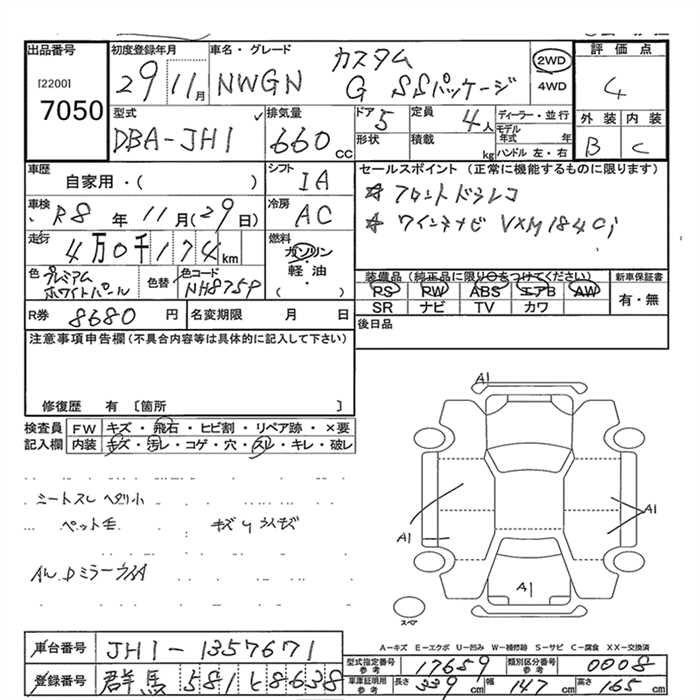 出品番号 初度登録年月 車名・グレード カスタム 評価点
[2200] 29 11月 NWGN G SSパッケージ 2WD 4
7050 4WD
型式 排気量 ドア 定員 ディーラー・並行 外装 内装
DBA-JH1 660cc 5 4人 モデル年式 年 B C
形状 積載 kg ハンドル 左・右
車歴 シフト セールスポイント (正常に機能するものに限ります)
自家用・( ) IA ☆フロントドラレコ
車検 冷房 ☆ワインナビ VXM184Ci
R8年11月(29日) AC
走行 燃料
4万0千174km ガソリン
軽・油
( )
色 色替 色コード 装備品 (純正品に限り○をつけてください) 新車保証書
プレミアムホワイトパール NH875P PS PW ABS エアB AW 有・無
SR ナビ TV カワ
R券 8680円 名変期限 月 日 後日品
注意事項申告欄(不具合内容等は具体的に記入して下さい)
修復歴 有 〔箇所 〕
検査員 FW キズ・飛石・ヒビ割・リペア跡・×要
記入欄 内装 キズ・汚レ・コゲ・穴・スレ・キレ・破レ
シートスレ ヘタリ小
ペット毛
AW Dミラー
A1
A1
A1
A1
スペア
A-キズ E-エクボ U-凹み W-補修跡 S-サビ C-腐食 XX-交換済
車台番号 JH1-1357671 型式指定番号 参考 17659 類別区分番号 参考 0008
登録番号 群馬 581 ヒ 8638 車庫証明用 参考 長さ 339cm 幅 147cm 高さ 165cm